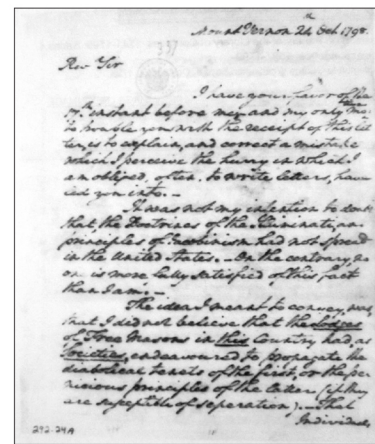 Mount Vernon 24th Oct. 1798.
Revd Sir
I have your favor of the
17th instant before me; and my only mo-
tive to trouble you with the receipt of this let
ter, is to explain, and correct a mistake
which I perceive the hurry in which I
am obliged, often, to write letters, have
led you into. —
It was not my intention to doubt
that, the Doctrines of the Illuminati, and
principles of Jacobinism had not spread
in the United States. On the contrary, no
one is more fully satisfied of this fact
than I am. —
The idea I meant to convey, was,
that I did not believe that the Lodges
of Free Masons in this Country had, as
Societies, endeavoured to propagate the
diabolical tenets of the first, or the per
nicious principles of the latter (if they
are susceptible of seperation). — That
Individuals
292-294